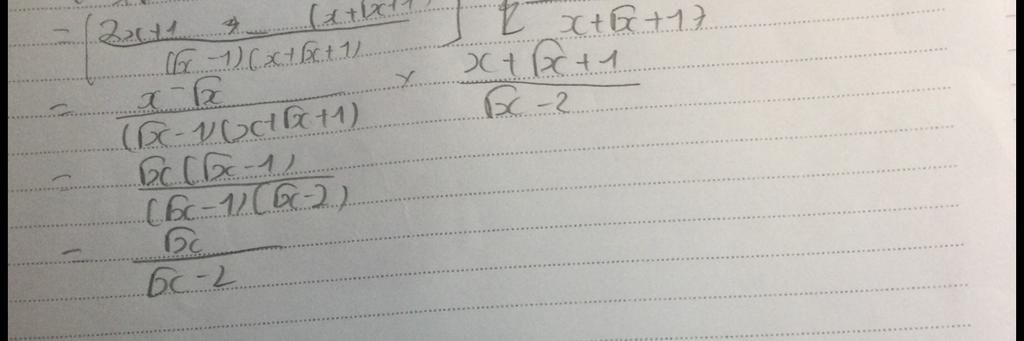 = [ (2x+1 - (x+√x+1)) / ((√x-1)(x+√x+1)) ] [ x+√x+1 ]
= (x-√x) / ((√x-1)(x+√x+1)) × (x+√x+1) / (√x-2)
= √x(√x-1) / ((√x-1)(√x-2))
= √x / (√x-2)